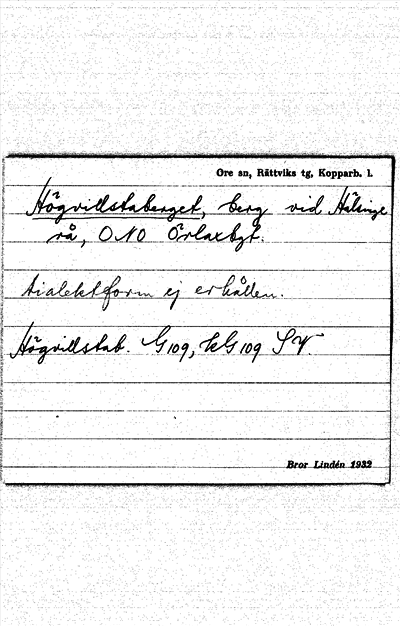 Ore sn, Rättviks tg, Kopparb. l.
Högvillstaberget, berg vid Hälsinge
rå, ONO Örlaxbgt.
Dialektform ej erhållen.
Högvillstab. G109, kG109 SV.
Bror Lindén 1932